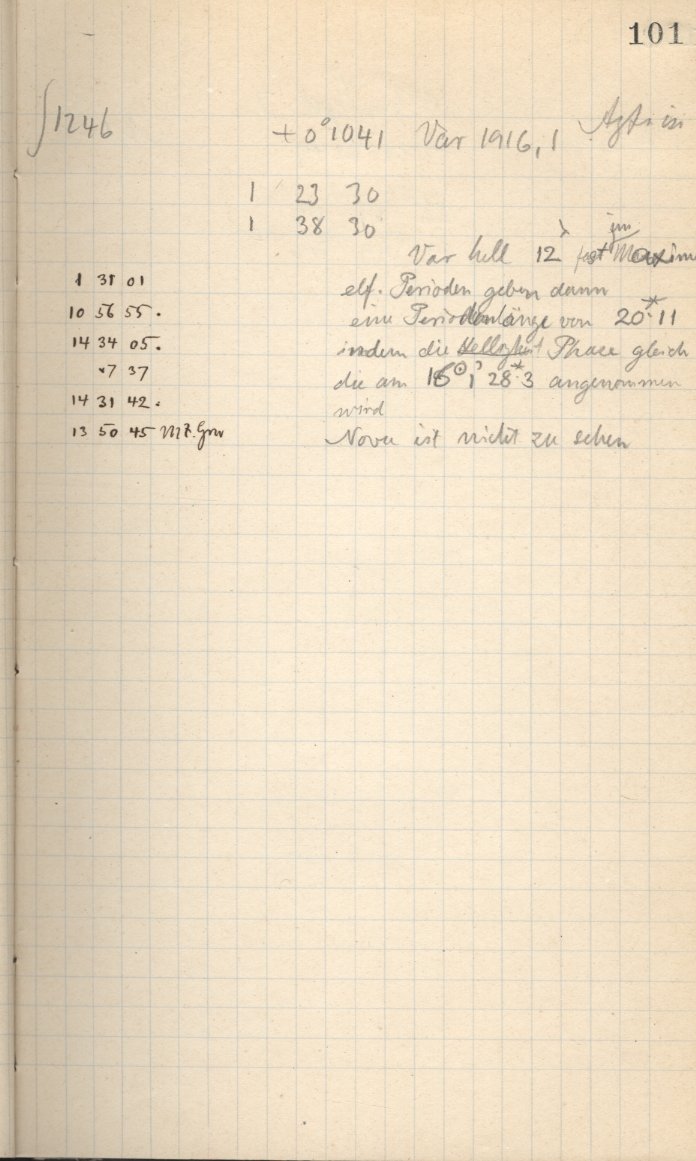 101
∫1246 +0°1041 Var 1916,1
1 23 30
1 38 30
im
Var hell 12 fast Maxim
1 31 01
elf. Perioden geben dann
10 56 55.
eine Periodenlänge von 20.11
14 34 05.
indem die Helligkeit Phase gleich
7 37
die am 28.3 angenommen
14 31 42.
wird
13 50 45 MZ. Grw
Nova ist nicht zu sehen